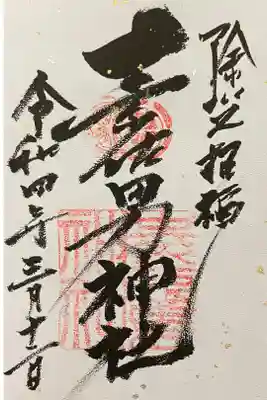 除災招福
素佐男神社
令和四年三月十二日